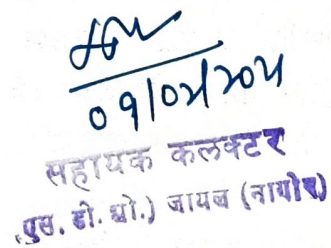 09/02/2024
सहायक कलक्टर
(एस. डी. ओ.) जायल (नागौर)